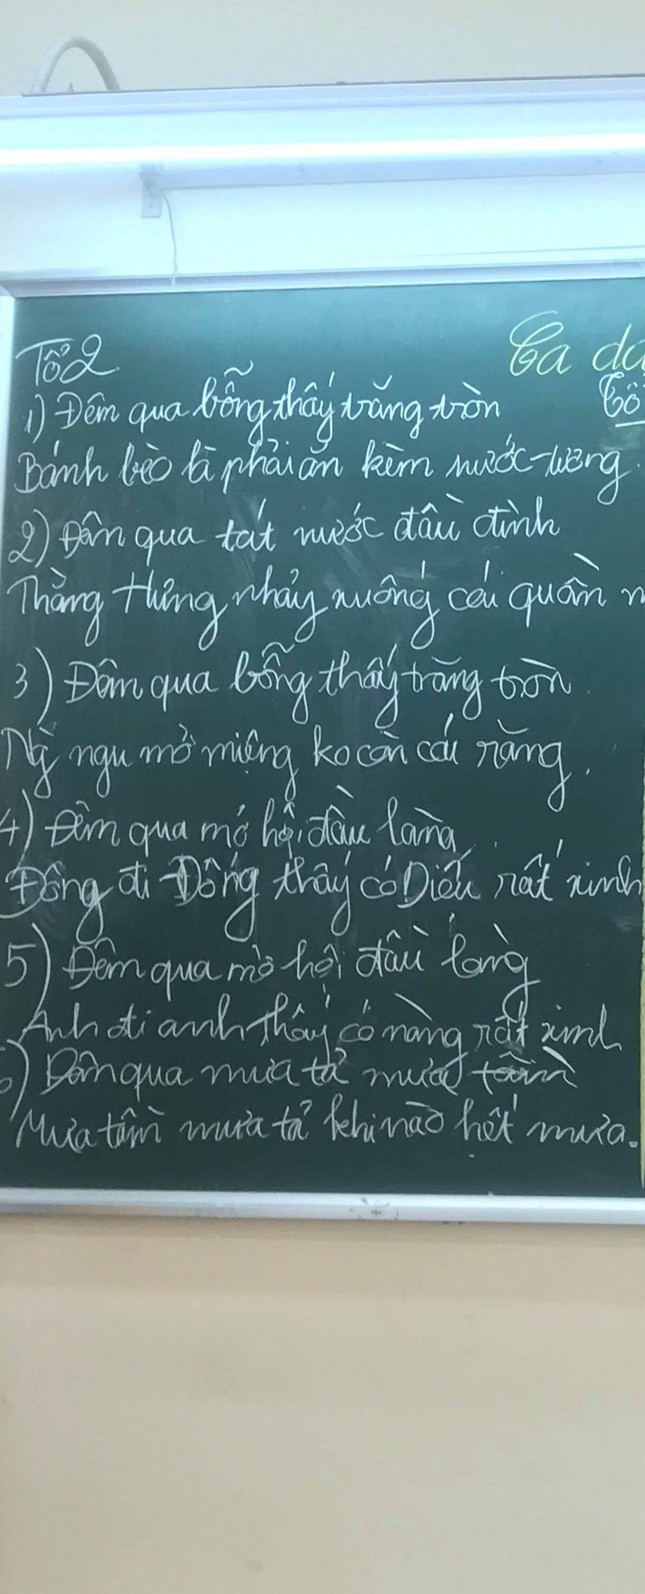 Ca da
Tổ 2
Tổ
1) Đêm qua bỗng thấy trăng tròn
Bánh bèo là phải ăn kèm nước tương
2) Đêm qua tát nước đầu đình
Thằng Hưng nhảy xuống cái quần
3) Đêm qua bỗng thấy trăng tròn
ngu mở miệng ko còn cái răng.
4) Đêm qua mở hội đầu làng
Đông đi Đông thấy có Diều rất xinh
5) Đêm qua mở hội đầu làng
Anh đi anh thấy có nàng rất xinh
6) Đêm qua mưa tả mưa tầm
Mưa tầm mưa tả khi nào hết mưa.